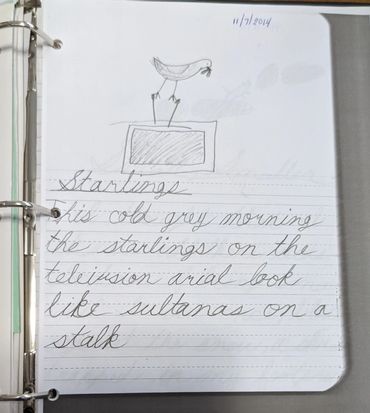 11/7/2014
Starlings
This cold grey morning
the starlings on the
teleivsion arial look
like sultanas on a
stalk